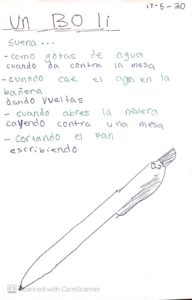 17-5-20
un BOli
suena...
- como gotas de agua
cuando da contra la mesa
- cuando cae el agua en la
bañera
Dando vueltas
- cuando abres la nevera
cayendo contra una mesa
- cortando el pan
escribiendo
Scanned with CamScanner